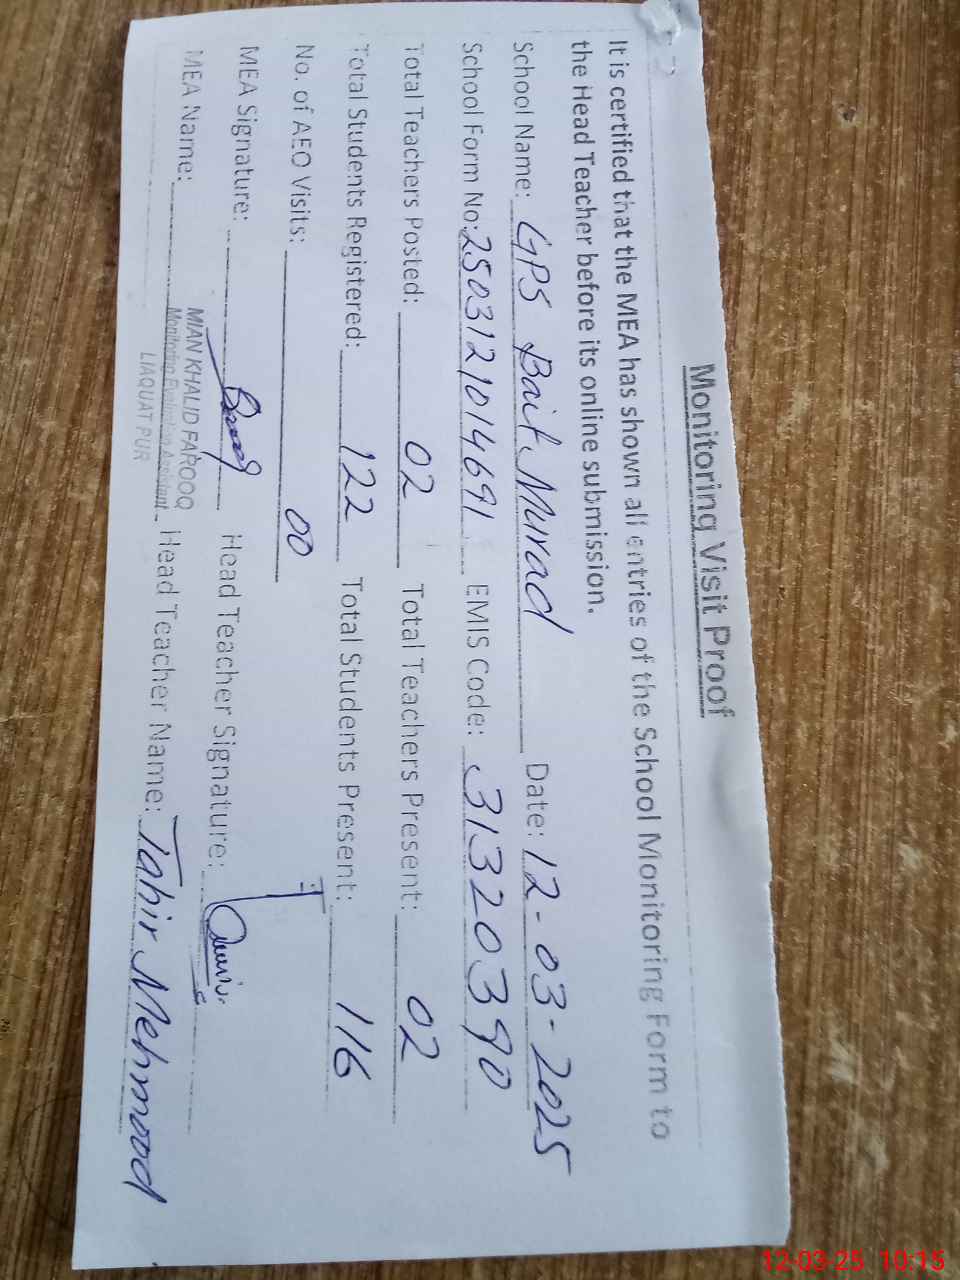 Monitoring Visit Proof
It is certified that the MEA has shown all entries of the School Monitoring Form to
the Head Teacher before its online submission.
School Name: GPS Bait Murad Date: 12-03-2025
School Form No: 2503121014691 EMIS Code: 31320390
Total Teachers Posted: 02 Total Teachers Present: 02
Total Students Registered: 122 Total Students Present: 116
No. of AEO Visits: 00
MEA Signature: Head Teacher Signature:
MEA Name: MIAN KHALID FAROOQ Head Teacher Name: Tahir Mehmood
Monitoring Evaluation Assistant
LIAQUAT PUR
12-03-25 10:15